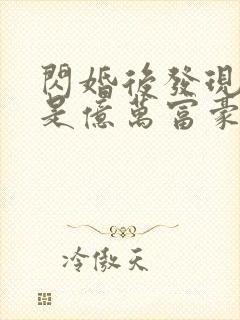 閃婚後發現
是億萬富豪
冷傲天